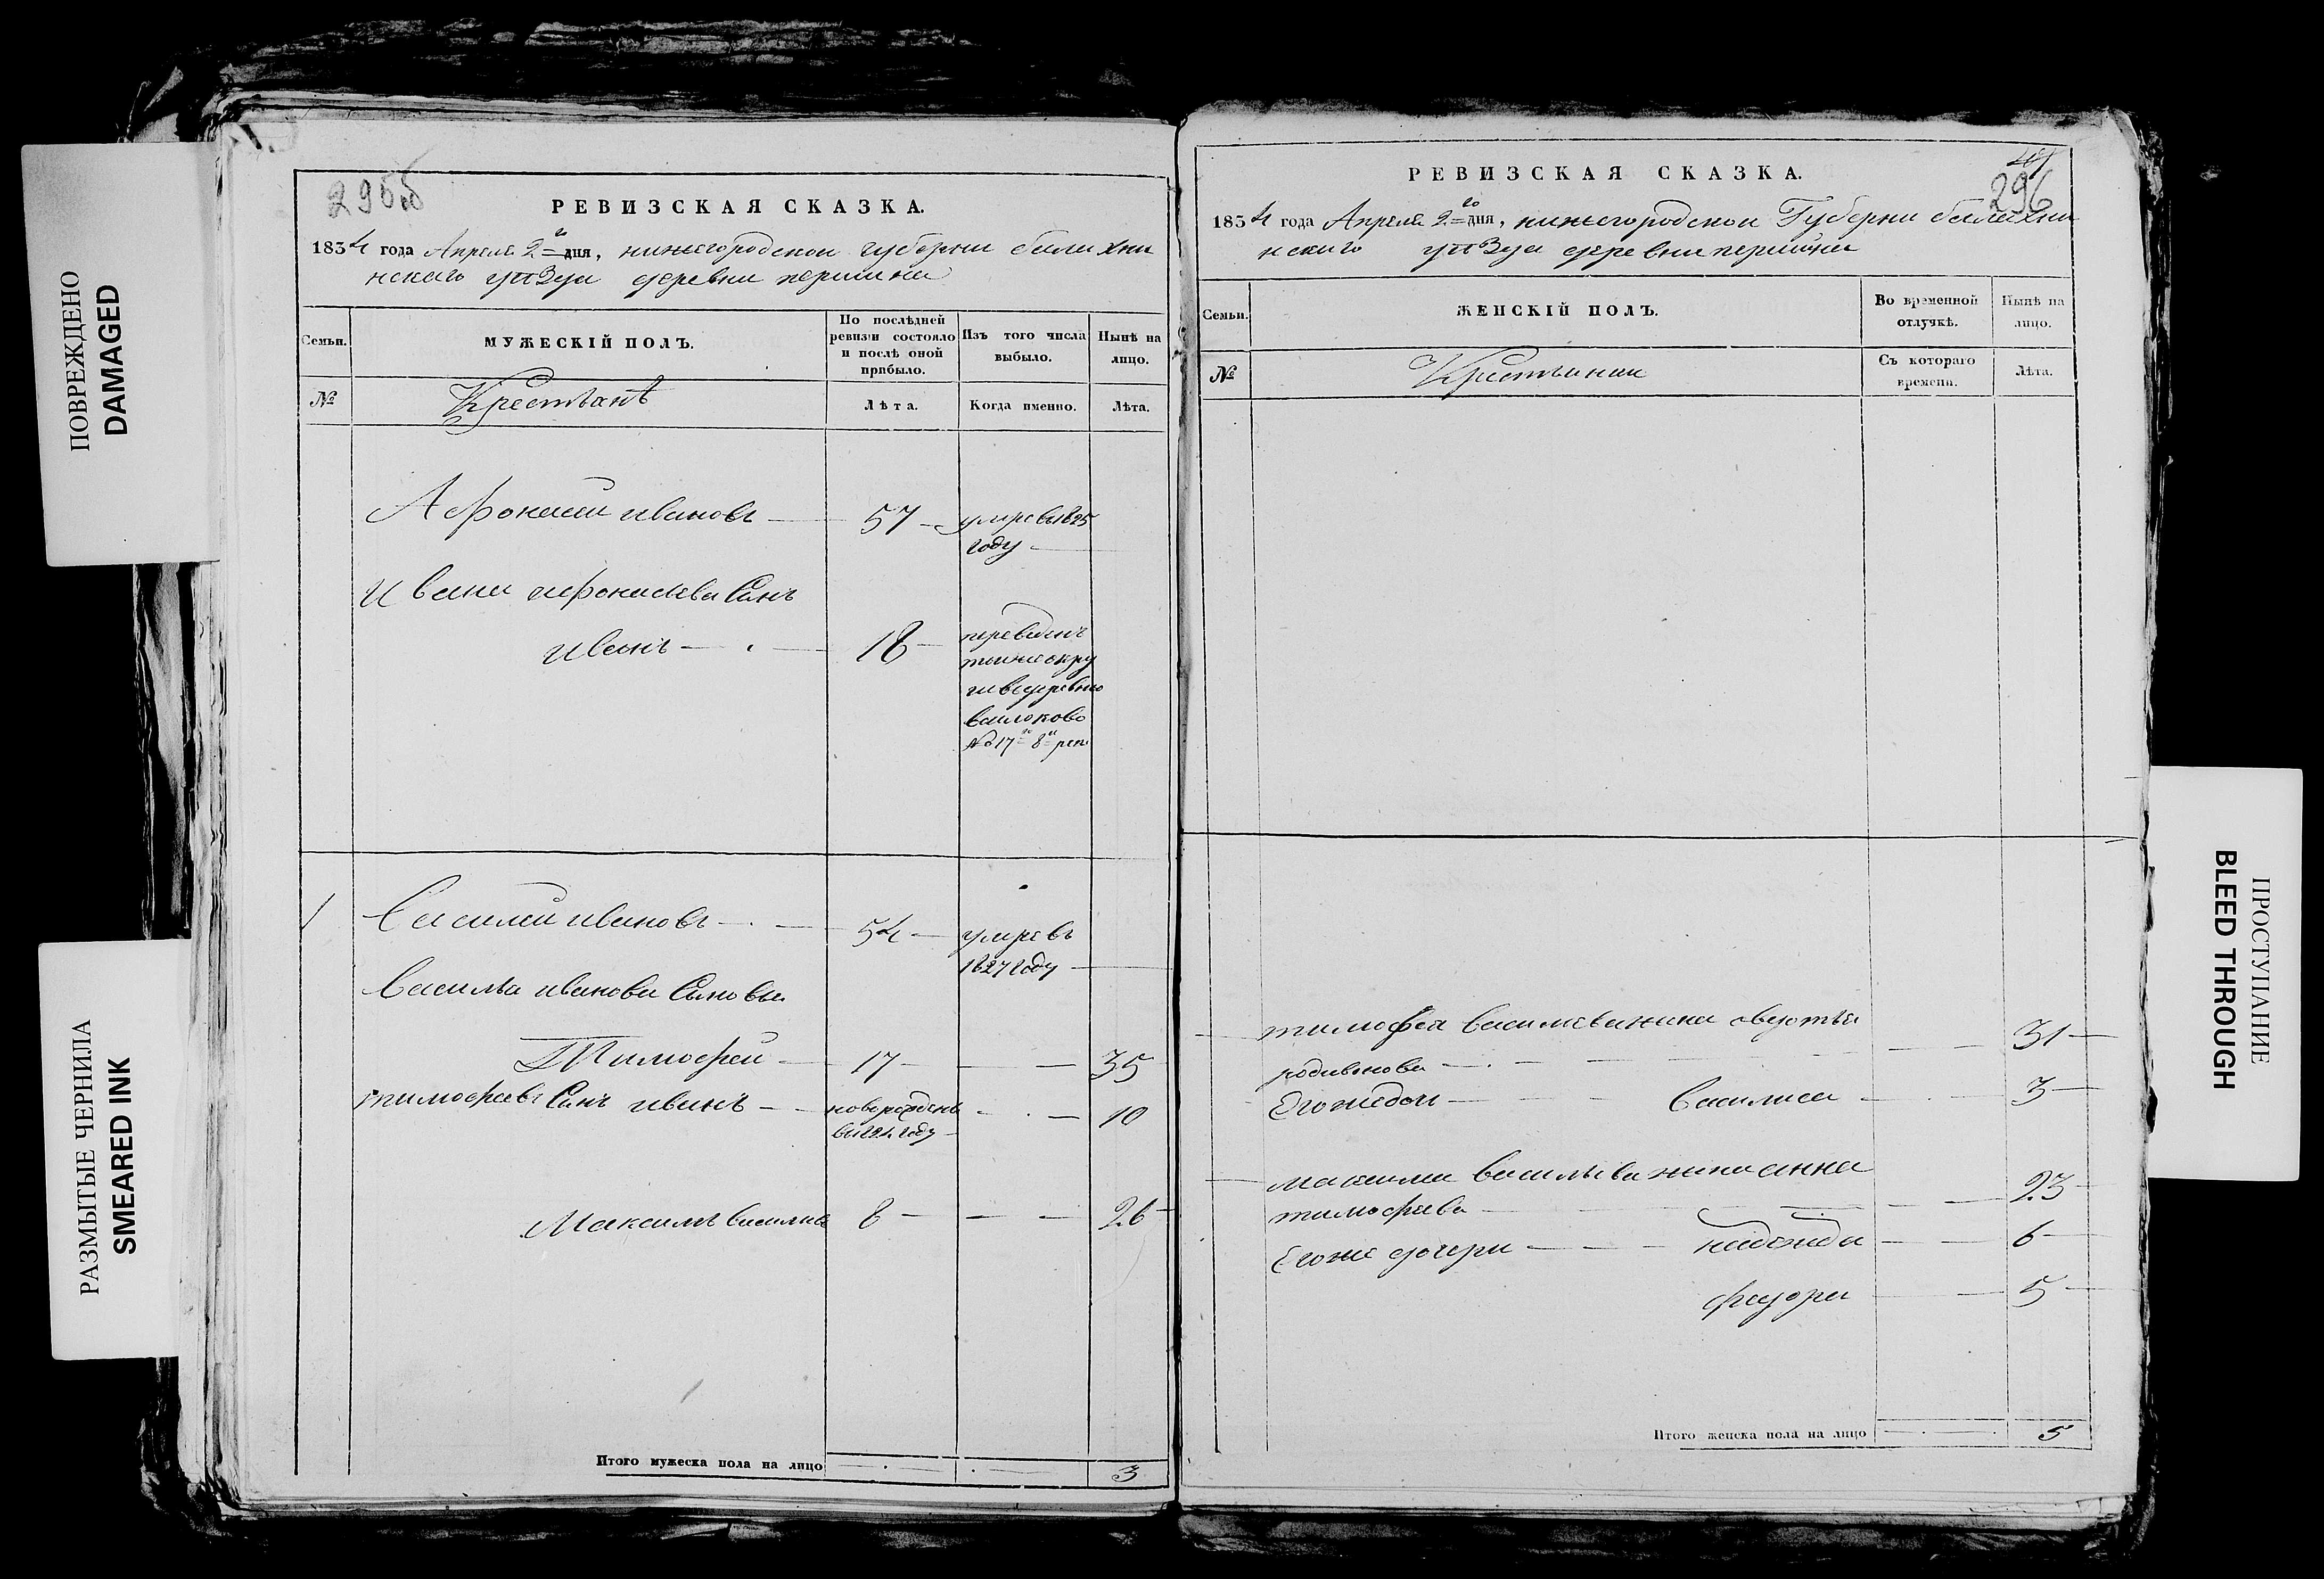 ПОВРЕЖДЕНО
DAMAGED
РАЗМЫТЫЕ ЧЕРНИЛА
SMEARED INK
РЕВИЗСКАЯ СКАЗКА.
1834 года Апреля 2го дня, нижегородской губерни балахни
нскаго уѣзда деревни
Семьи.
МУЖЕСКІЙ ПОЛЪ.
По послѣдней ревизіи состояло и послѣ оной прибыло.
Изъ того числа выбыло.
Нынѣ на лицо.
№
Крестьянѣ
Лѣта.
Когда именно.
Лѣта.
Афонасей ивановъ 57 умре въ 1825
году
Ивана афонасьева Сынъ
иванъ 18 переведенъ
тоиже окру
ги в деревню
№ 17го 8и рев
1 Василей ивановъ 54 умре въ
1827 году
Василья иванова Сыновья
Тимофей 17 35
тимофеевъ Сынъ иванъ новорожденъ 10
в 1824 году
Максимъ васильев 8 26
Итого мужеска пола на лицо 3
296
РЕВИЗСКАЯ СКАЗКА.
1834 года Апреля 2го дня, нижегородской Губерни балахни
нскаго уѣзда деревни
Семьи.
ЖЕНСКІЙ ПОЛЪ.
Во временной отлучкѣ.
Нынѣ на лицо.
№
Крестьянки
Съ котораго времени.
Лѣта.
тимофея васильева жена авдотья 31
родивонова
Его же доч Василиса 3
максима васильева жена анна 23
тимофеева
Его же дочери надежда 6
федора 5
Итого женска пола на лицо 5
ПРОСТУПАНИЕ
BLEED THROUGH